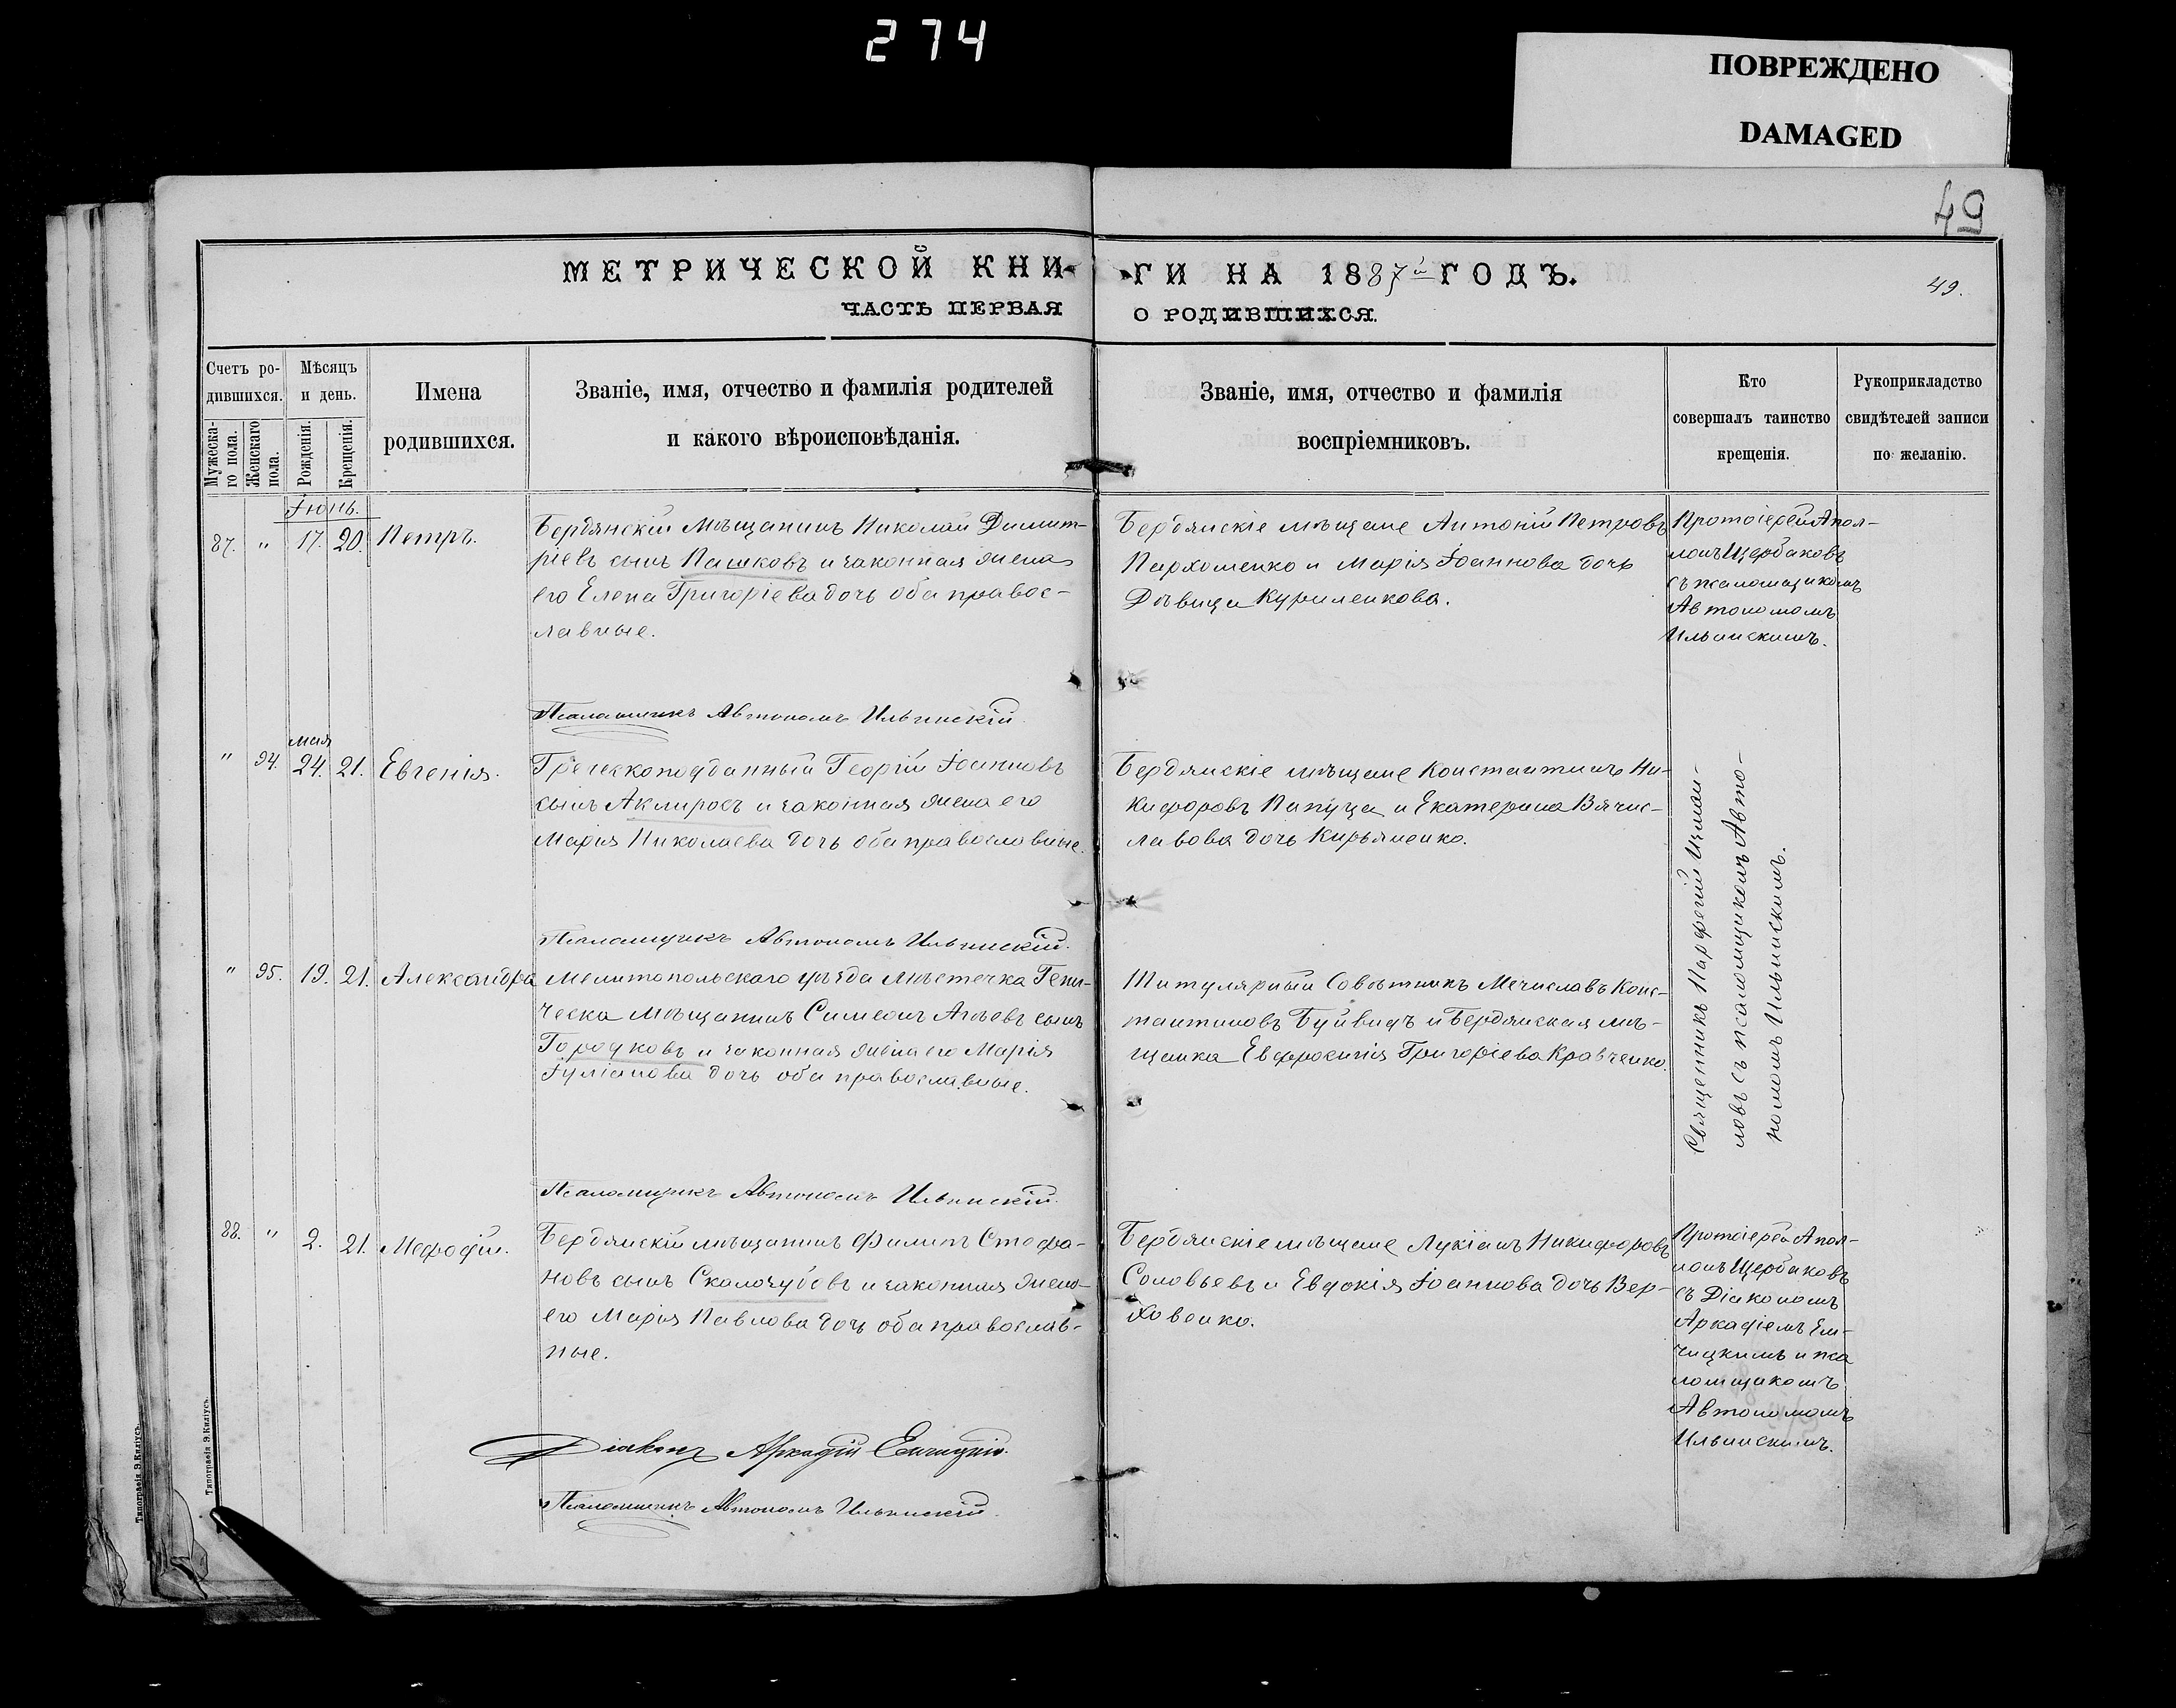 274
ПОВРЕЖДЕНО
DAMAGED
49
МЕТРИЧЕСКОЙ КНИ-
ГИ НА 1887й ГОДЪ.
49.
ЧАСТЬ ПЕРВАЯ
О РОДИВШИХСЯ.
Счетъ ро-
дившихся.
Мужеска-
го пола.
Женскаго
пола.
Мѣсяцъ
и день.
Рожденія.
Крещенія.
Имена
родившихся.
Званіе, имя, отчество и фамилія родителей
и какого вѣроисповѣданія.
Званіе, имя, отчество и фамилія
воспріемниковъ.
Кто
совершалъ таинство
крещенія.
Рукоприкладство
свидѣтелей записи
по желанію.
Іюнь.
87. " 17. 20. Петръ.
Бердянскій мѣщанинъ Николай Димит-
ріевъ сынъ Пашковъ и законная жена
его Елена Григоріева дочь оба правос-
лавные.
Бердянскіе мѣщане Антоній Петровъ
Пархоменко и Марія Іоаннова дочь
Дѣвица Куриленкова.
Протоіерей Апол-
лонъ Щербаковъ
съ псаломщикомъ
Автономомъ
Ильинскимъ.
Псаломщикъ Автономъ Ильинскій.
мая
" 94. 24. 21. Евгенія.
Греческоподданный Георгій Іоанновъ
сынъ Аклиросъ и законная жена его
Марія Николаева дочь оба православные.
Бердянскіе мѣщане Константинъ Ни-
кифоровъ Папуца и Екатерина Вячис-
лавова дочь Кирьяненко.
Священникъ Парфеній Измаи-
ловъ съ псаломщикомъ Авто-
номомъ Ильинскимъ.
Псаломщикъ Автономъ Ильинскій.
" 95. 19. 21. Александра
Мелитопольскаго уѣзда мѣстечка Гени-
ческа мѣщанинъ Симеонъ Агѣевъ сынъ
Городковъ и законная жена его Марія
Іуліанова дочь оба православные.
Титулярный Совѣтникъ Мечиславъ Конс-
тантиновъ Буйвидъ и Бердянская мѣ-
щанка Евфросинія Григоріева Кравченко.
Псаломщикъ Автономъ Ильинскій.
88. " 2. 21. Мефодій.
Бердянскій мѣщанинъ Филипъ Стефа-
новъ сынъ Скалозубовъ и законная жена
его Марія Павлова дочь оба православ-
ные.
Бердянскіе мѣщане Лукіанъ Никифоровъ
Соловьевъ и Евдокія Іоаннова дочь Вер-
ховенко.
Протоіерей Апол-
лонъ Щербаковъ
съ Діакономъ
Аркадіемъ Ем-
чицкимъ и пса
ломщикомъ
Автономомъ
Ильинскимъ.
Діаконъ Аркадій Емчицкій.
Псаломщикъ Автономъ Ильинскій.
Типографія Э.Киліусъ.
Типографія Э.Киліусъ.